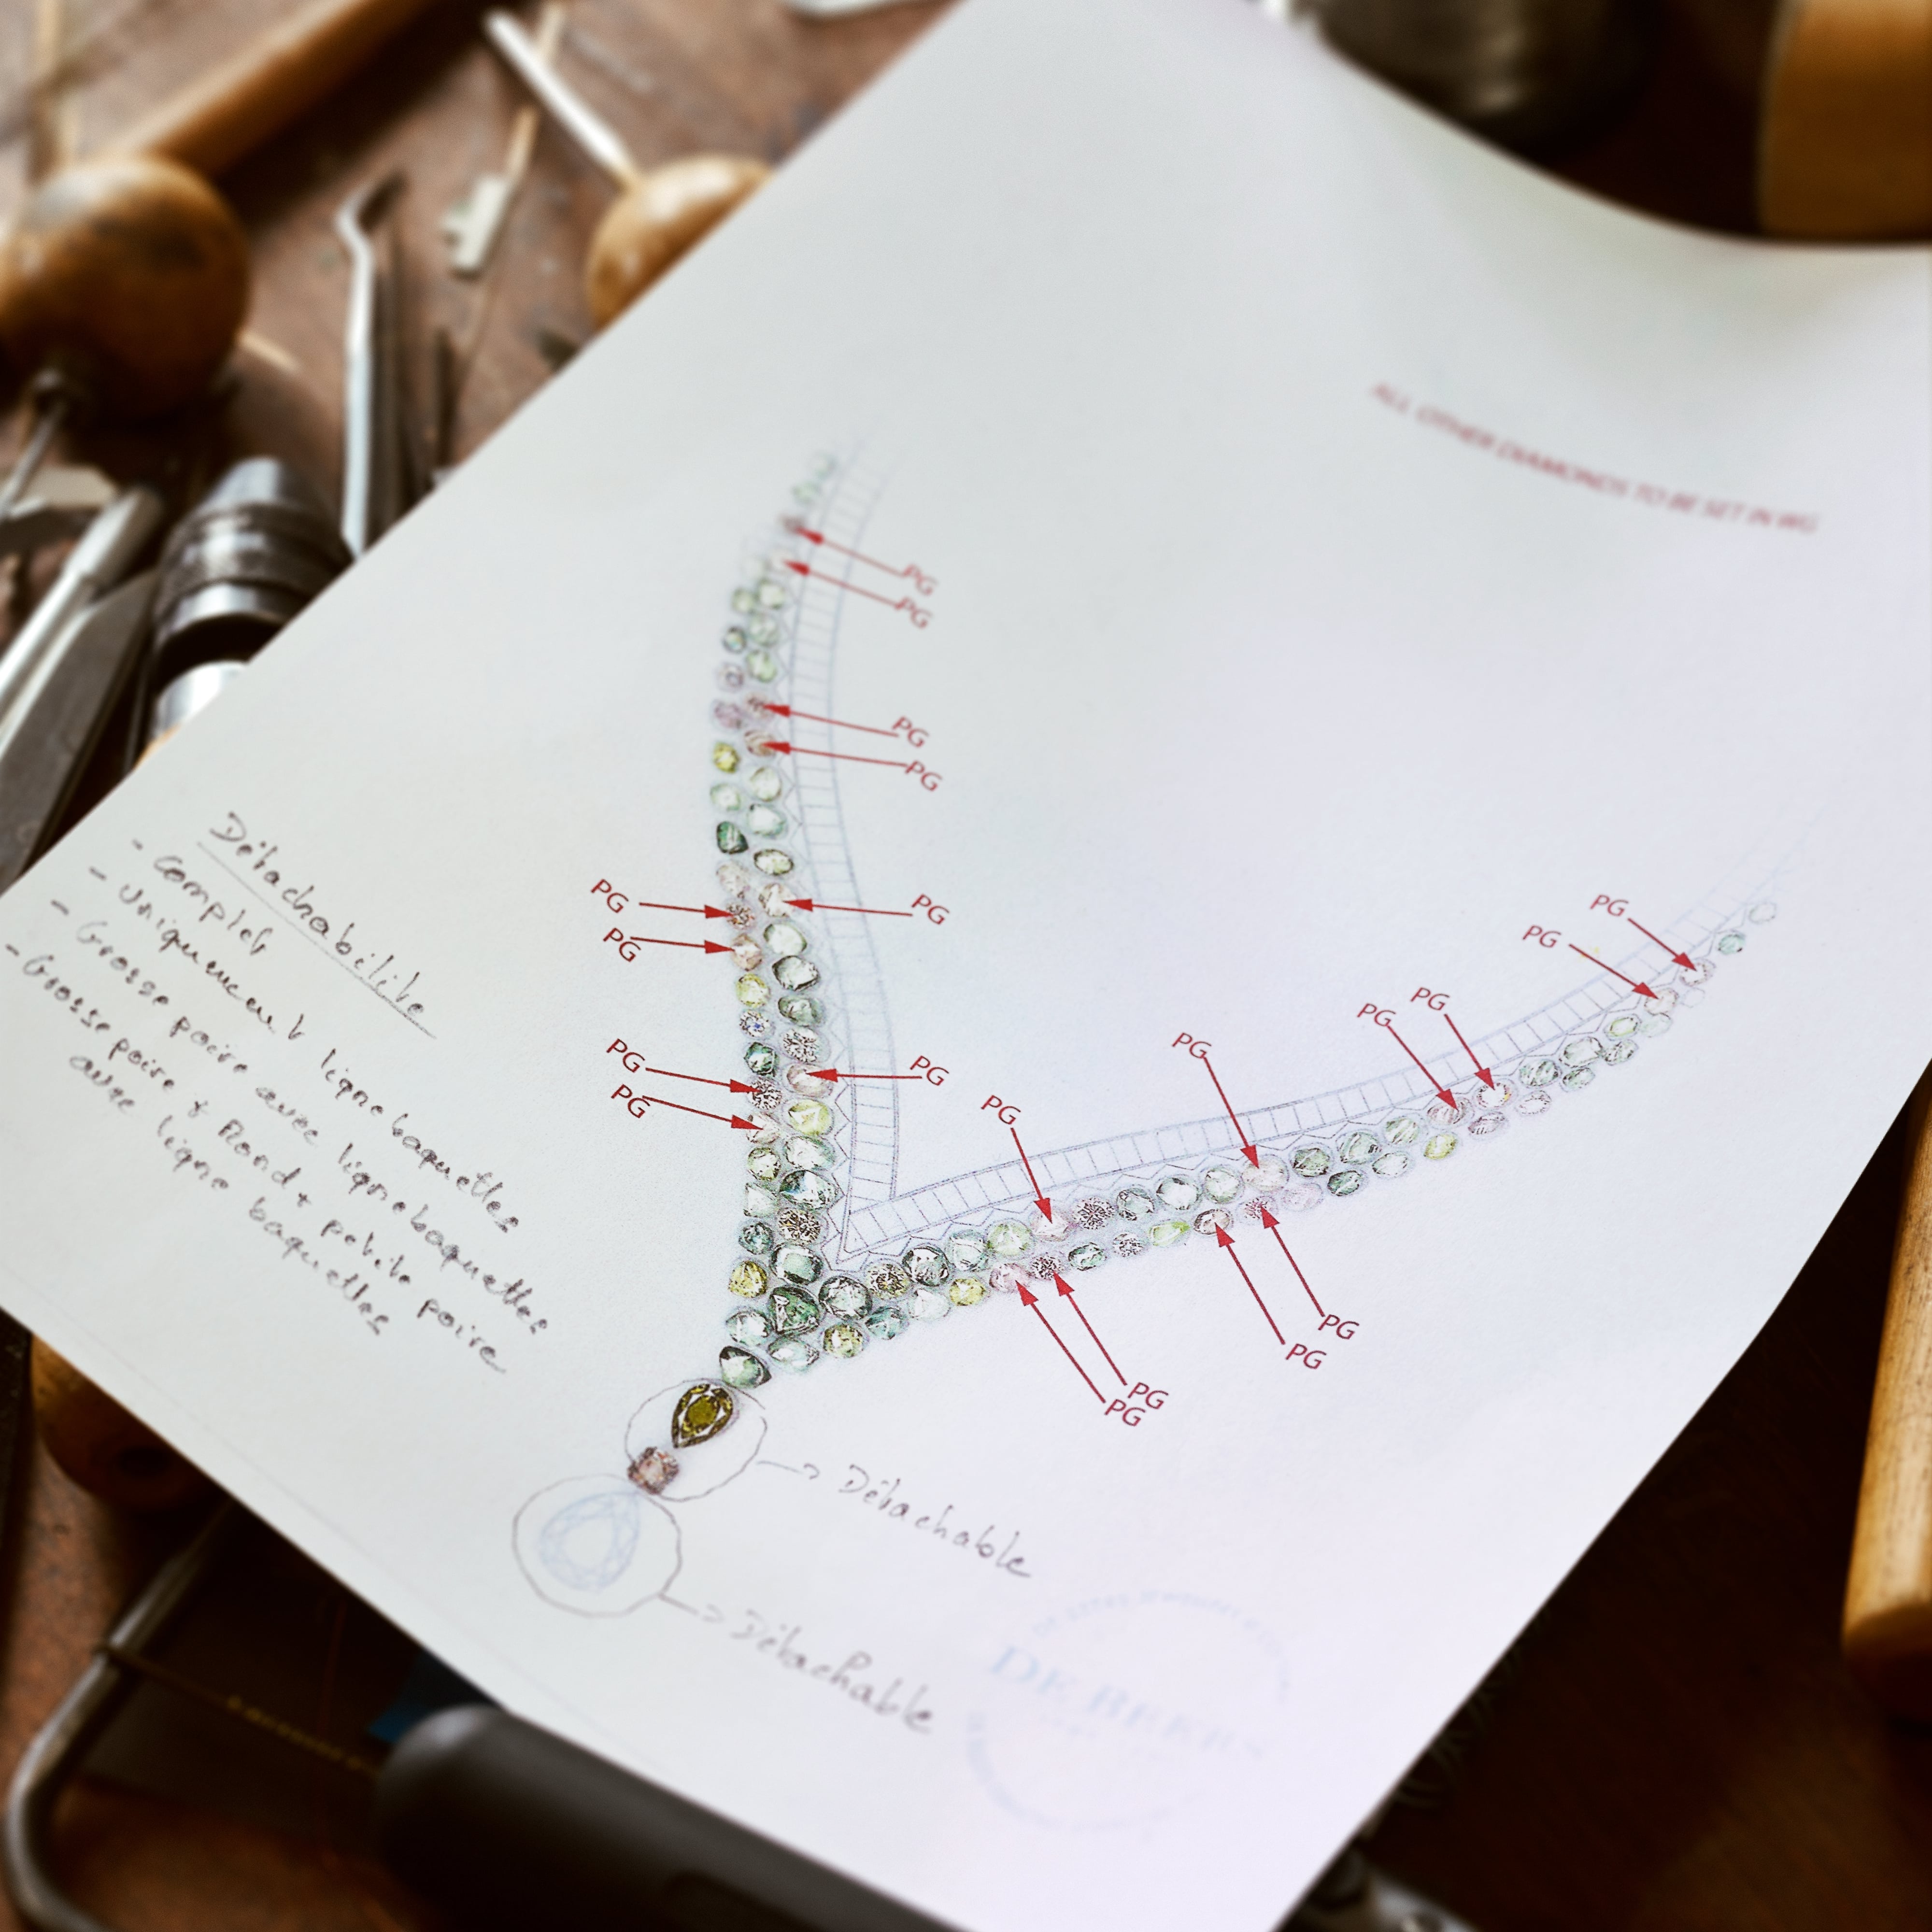 ALL OTHER DIAMONDS TO BE SET IN WG
PG
PG
PG
PG
PG
PG
PG
PG
PG
PG
PG
PG
PG
PG
PG
PG
PG
PG
PG
PG
PG
PG
Détachabilité
- Complet
- Uniquement ligne baquettes
- Grosse poire avec ligne baquettes
- Grosse poire + Rond + petite poire
avec ligne baquettes
Détachable
Détachable
DE BEERS